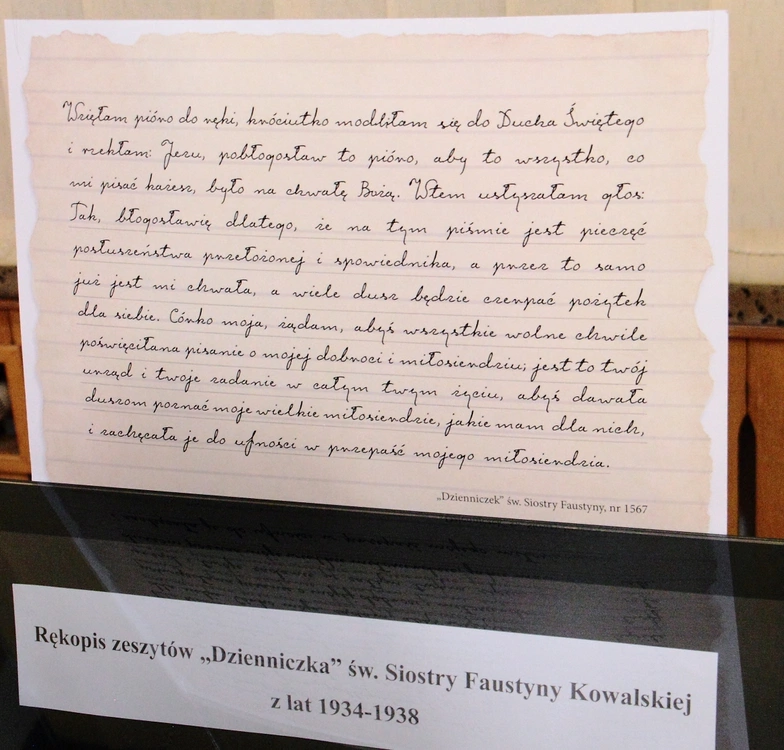 Wzięłam pióro do ręki, króciutko modliłam się do Ducha Świętego
i rzekłam: Jezu, pobłogosław to pióro, aby to wszystko, co
mi pisać każesz, było na chwałę Bożą. Wtem usłyszałam głos:
Tak, błogosławię dlatego, że na tym piśmie jest pieczęć
posłuszeństwa przełożonej i spowiednika, a przez to samo
już jest mi chwała, a wiele dusz będzie czerpać pożytek
dla siebie. Córko moja, żądam, abyś wszystkie wolne chwile
poświęciłana pisanie o mojej dobroci i miłosierdziu; jest to twój
urząd i twoje zadanie w całym twym życiu, abyś dawała
duszom poznać moje wielkie miłosierdzie, jakie mam dla nich,
i zachęcała je do ufności w przepaść mojego miłosierdzia.
„Dzienniczek” św. Siostry Faustyny, nr 1567
Rękopis zeszytów „Dzienniczka” św. Siostry Faustyny Kowalskiej
z lat 1934-1938